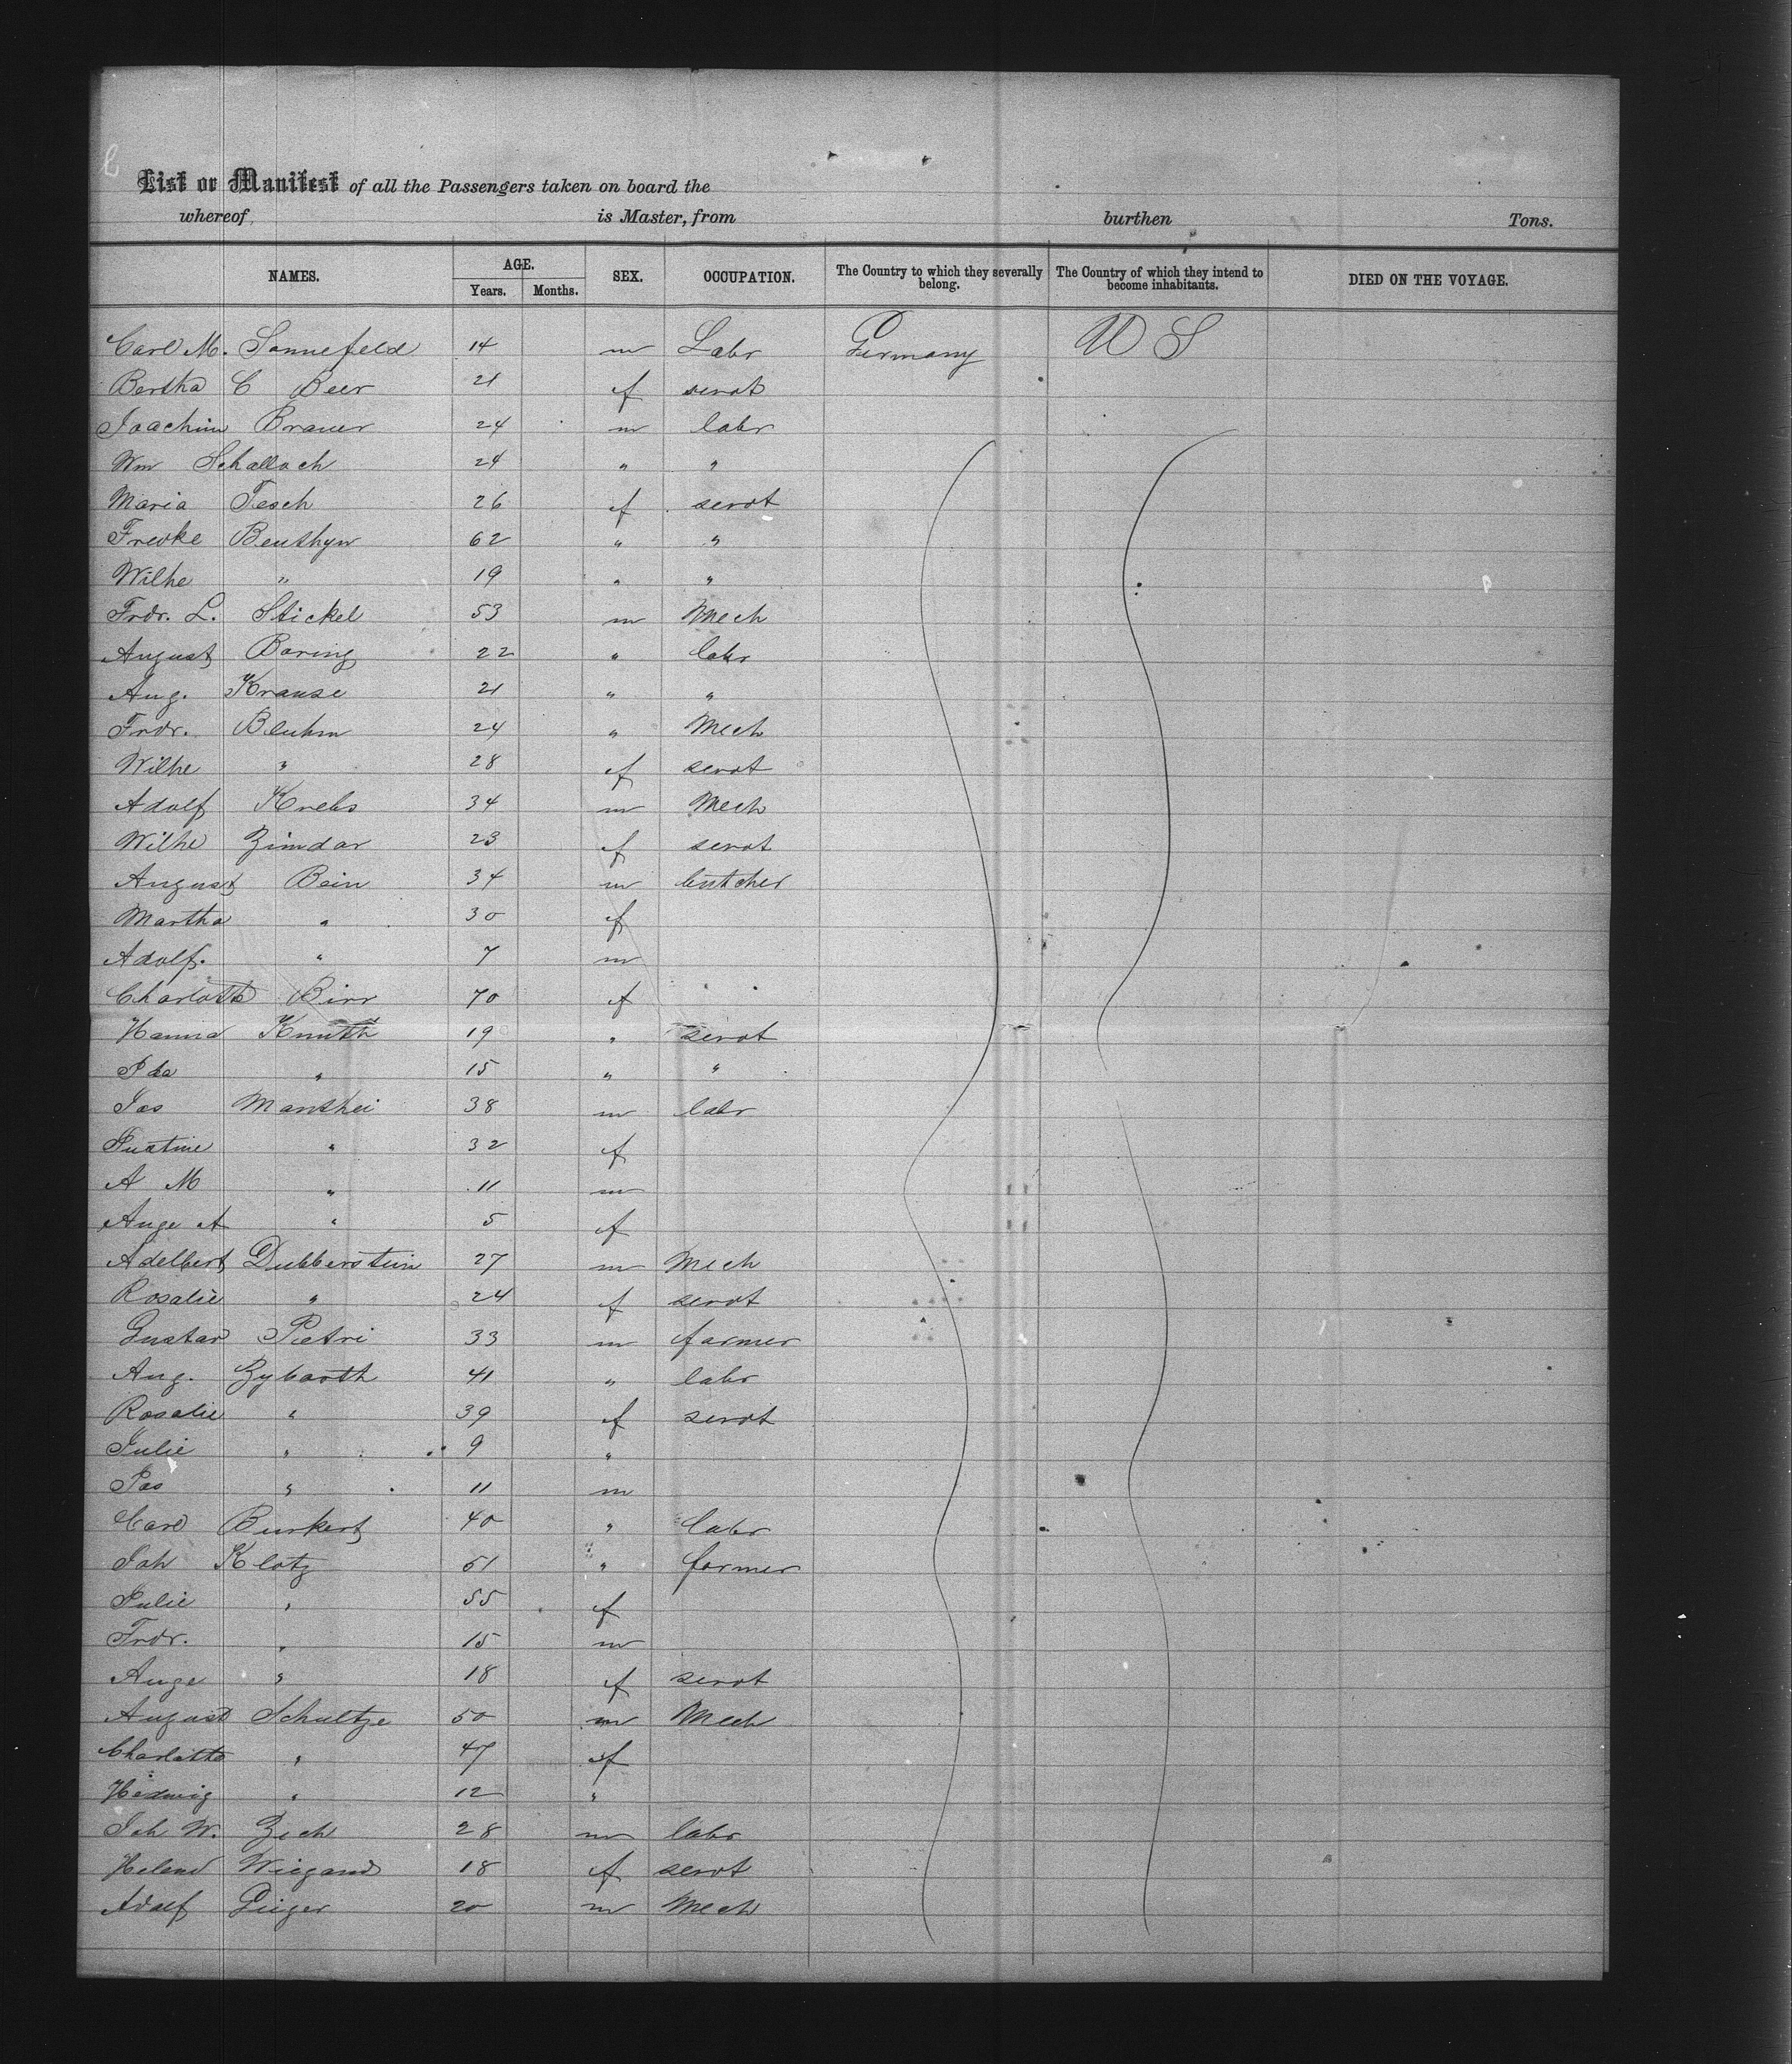 List or Manifest of all the Passengers taken on board the
whereof is Master, from burthen Tons.
NAMES. AGE. Years. Months. SEX. OCCUPATION. The Country to which they severally belong. The Country of which they intend to become inhabitants. DIED ON THE VOYAGE.
Carl M. Sonnefeld 14 m Labr Germany U S
Bertha C Beer 21 f servt
Joachim Brauer 24 m labr
Wm Schallach 24 " "
Maria Tesch 26 f servt
Fredke Benthyn 62 " "
Wilhe " 19 " "
Frdr. L. Stickel 53 m Mech
August Baring 22 " labr
Aug. Krause 21 " "
Frdr. Bluhm 24 " Mech
Wilhe " 28 f servt
Adolf Krebs 34 m Mech
Wilhe Zimdar 23 f servt
August Bein 34 m butcher
Martha " 30 f
Adolf. " 7 m
Charlotte Birr 70 f
Hanna Knuth 19 " servt
Ida " 15 " "
Jos Manthei 38 m labr
Justine " 32 f
A M " 11 m
Auge A " 5 f
Adelbert Dubberstein 27 m Mech
Rosalie " 24 f servt
Gustav Pietri 33 m farmer
Aug. Zybarth 41 " labr
Rosalie " 39 f servt
Julie " 9 "
Jos " 11 m
Carl Burkert 40 " labr
Joh Klotz 51 " farmer
Julie " 55 f
Frdr. " 15 m
Auge " 18 f servt
August Schultze 50 m Mech
Charlotte " 47 f
Hedwig " 12 "
Joh W. Zech 28 m labr
Helene Wiegand 18 f servt
Adolf Geiger 20 m Mech